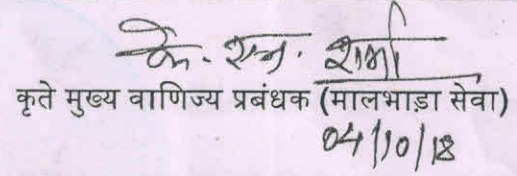 के. एन. शर्मा
कृते मुख्य वाणिज्य प्रबंधक (मालभाड़ा सेवा)
04/10/18